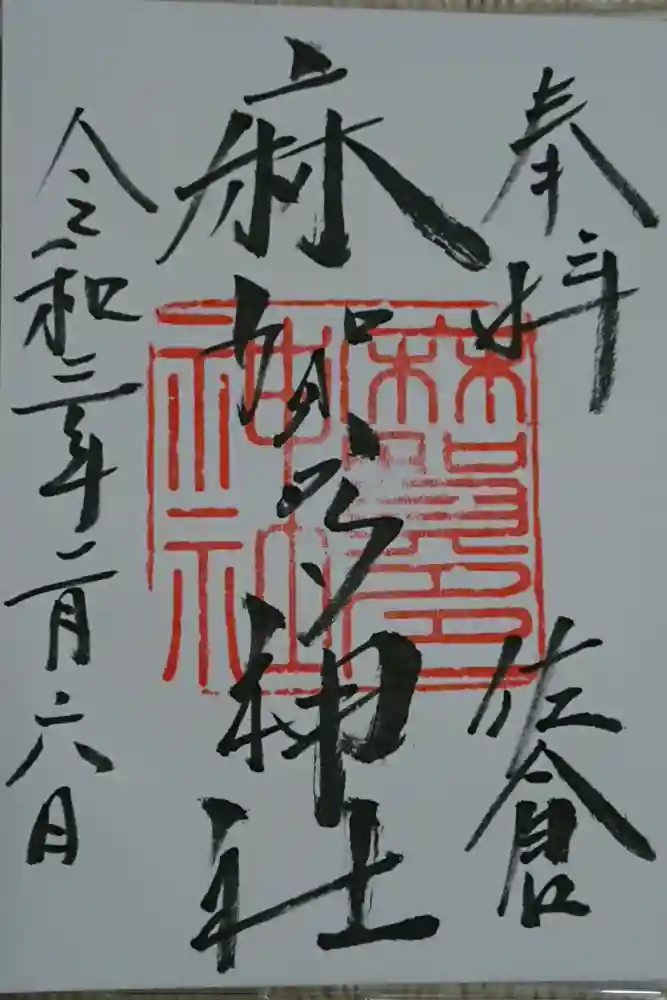 奉拝
佐倉
麻賀多神社
麻賀多
神社
令和三年二月六日